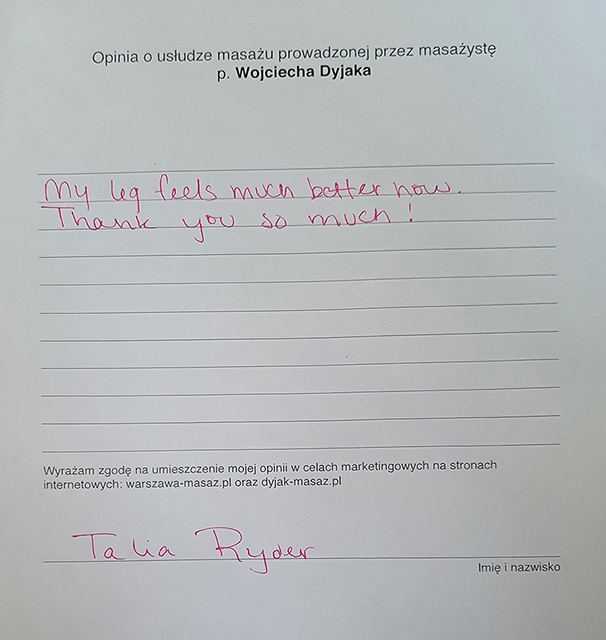 Opinia o usłudze masażu prowadzonej przez masażystę
p. Wojciecha Dyjaka
My leg feels much better now.
Thank you so much!
Wyrażam zgodę na umieszczenie mojej opinii w celach marketingowych na stronach
internetowych: warszawa-masaz.pl oraz dyjak-masaz.pl
Talia Ryder
Imię i nazwisko